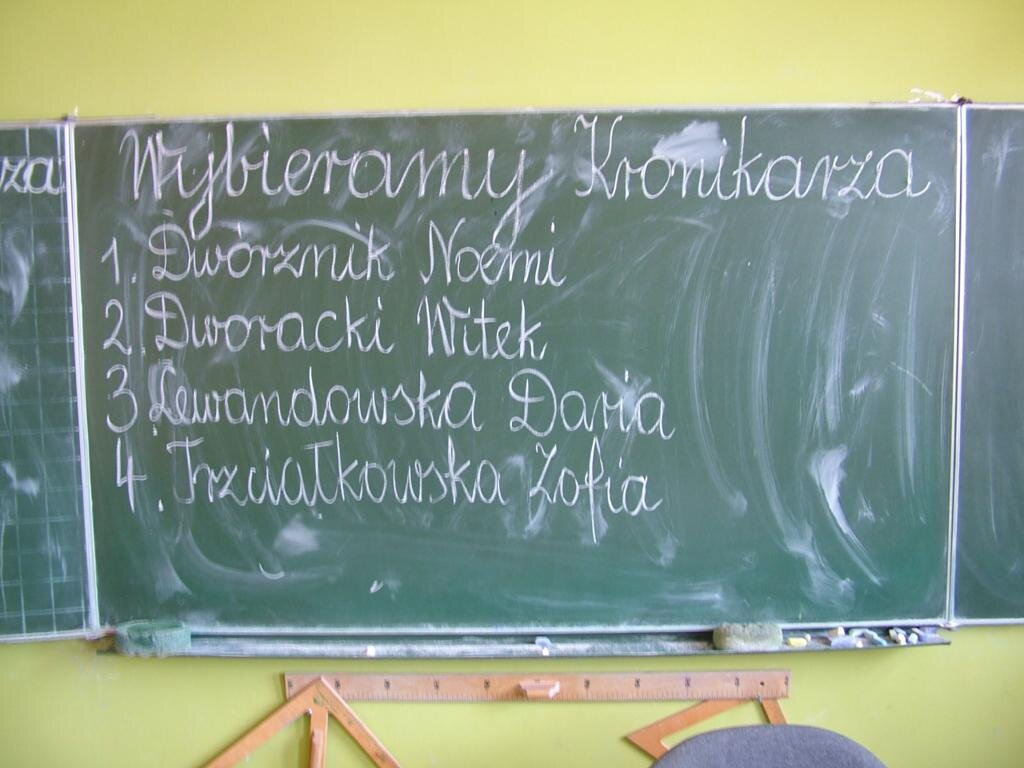 za
Wybieramy Kronikarza
1. Dwórznik Noemi
2. Dworacki Witek
3 Lewandowska Daria
4. Trzciałkowska Zofia